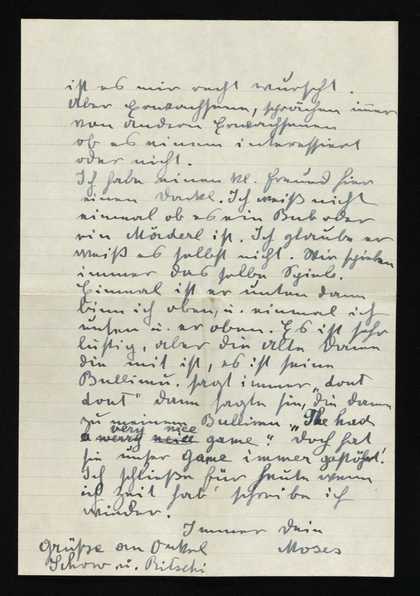 ist es mir recht wurscht.
Aber Erwachsene, sprächen immer
von andern Erwachsenen
ob es einem interessiert
oder nicht.
Ich habe einen kl. Freund hier
einen Dackl. Ich weiß nicht
einmal ob es ein Bub oder
ein Mäderl ist. Ich glaube er
weiß es selbst nicht. Wir spielen
immer das selbe Spiel.
Einmal ist er unten dann
binn ich oben, u. einmal ich
unten u. er oben. Es ist sehr
lustig, aber die alte Dame
die mit ist, es ist seine
sagt immer „dont
dont" dann sagte sie, die Dame
zu meiner "She had
very nice
a werry nice game". Doch hat
sie unser Game immer gestöhrt!
Ich schließe für heute wenn
ich Zeit hab' schreibe ich
wieder.
Immer Dein
Grüße an Onkel Moses
u. Bitschi